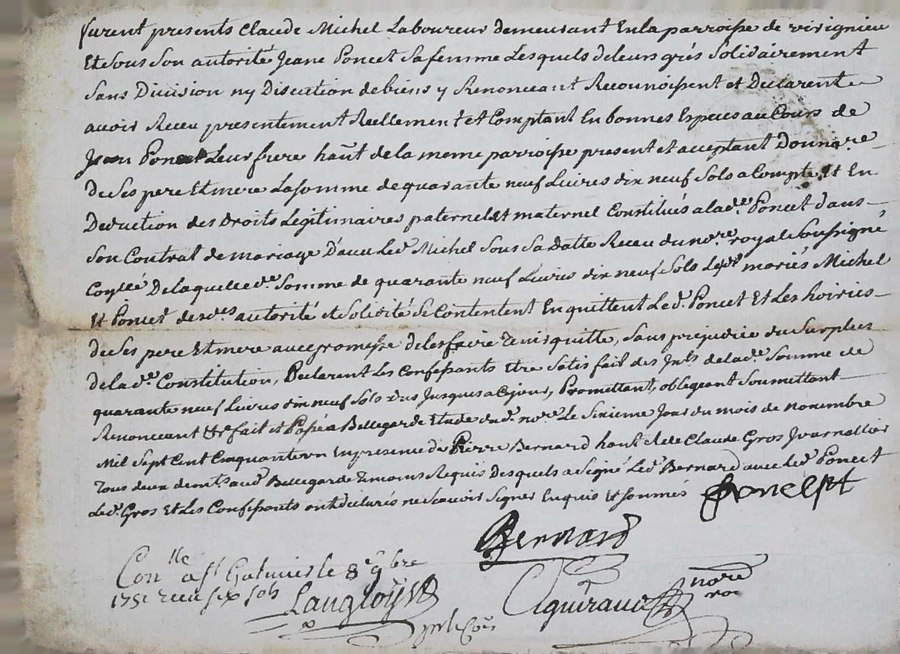 furent presents Claude Michel Laboureur demeurant En la parroisse de virignieu
Et Sous Son autorité Jeane Poncet Sa femme Lesquels de leurs grés Solidairement
Sans Division ny Discution de biens y Renonceant Recounoissent et Declarent
avoir Receu presentement Reellement et Comptant En bonnes Especes au Cours de
Jean Poncet Leur frere habt. de la meme parroisse present et acceptant
de Ses pere Et mere La somme de quarante neuf Livres dix neuf Sols a Compte Et En
Deduction des Droits Legitimaires paternel et maternel Constitués a lade. Poncet dans
Son Contrat de mariage D'avec Led. Michel Sous Sa Datte Receu du nore. royal Soussigné
De laquelle de. Somme de quarante neuf Livres dix neuf Sols Lesd. mariés Michel
Et Poncet de autorité et Solidité Se Contentent En quittent Led. Poncet Et Les hoiries
de Ses pere Et mere avec promesse de les faire tenir quitte, Sans prejudice du Surplus
de lad. Constitution, Declarent Les Confessants Etre Satisfait des de lade. Somme de
quarante neuf Livres dix neuf Sols dus Jusques a Ce jour, Promettant, obligeant Soumettant
Renonceant &c fait et Passé a Bellegarde Etude du d. nore. Le Sixieme Jour du mois de novembre
Mil Sept Cent Cinquante un En presence de Pierre Bernard habt. et de Claude Gros Journallier
tous deux demts. aud. Bellegarde temoins Requis Desquels a Signé Led. Bernard avec Led. Poncet
Led. Gros Et Les Confessants ont declarés ne Scavoir Signer Enquis Et Sommés
Poncet
Bernard
Conllé a St Galmier le 8e 9bre
1751 receu six sols
Langloys
Aguiraud nore roal